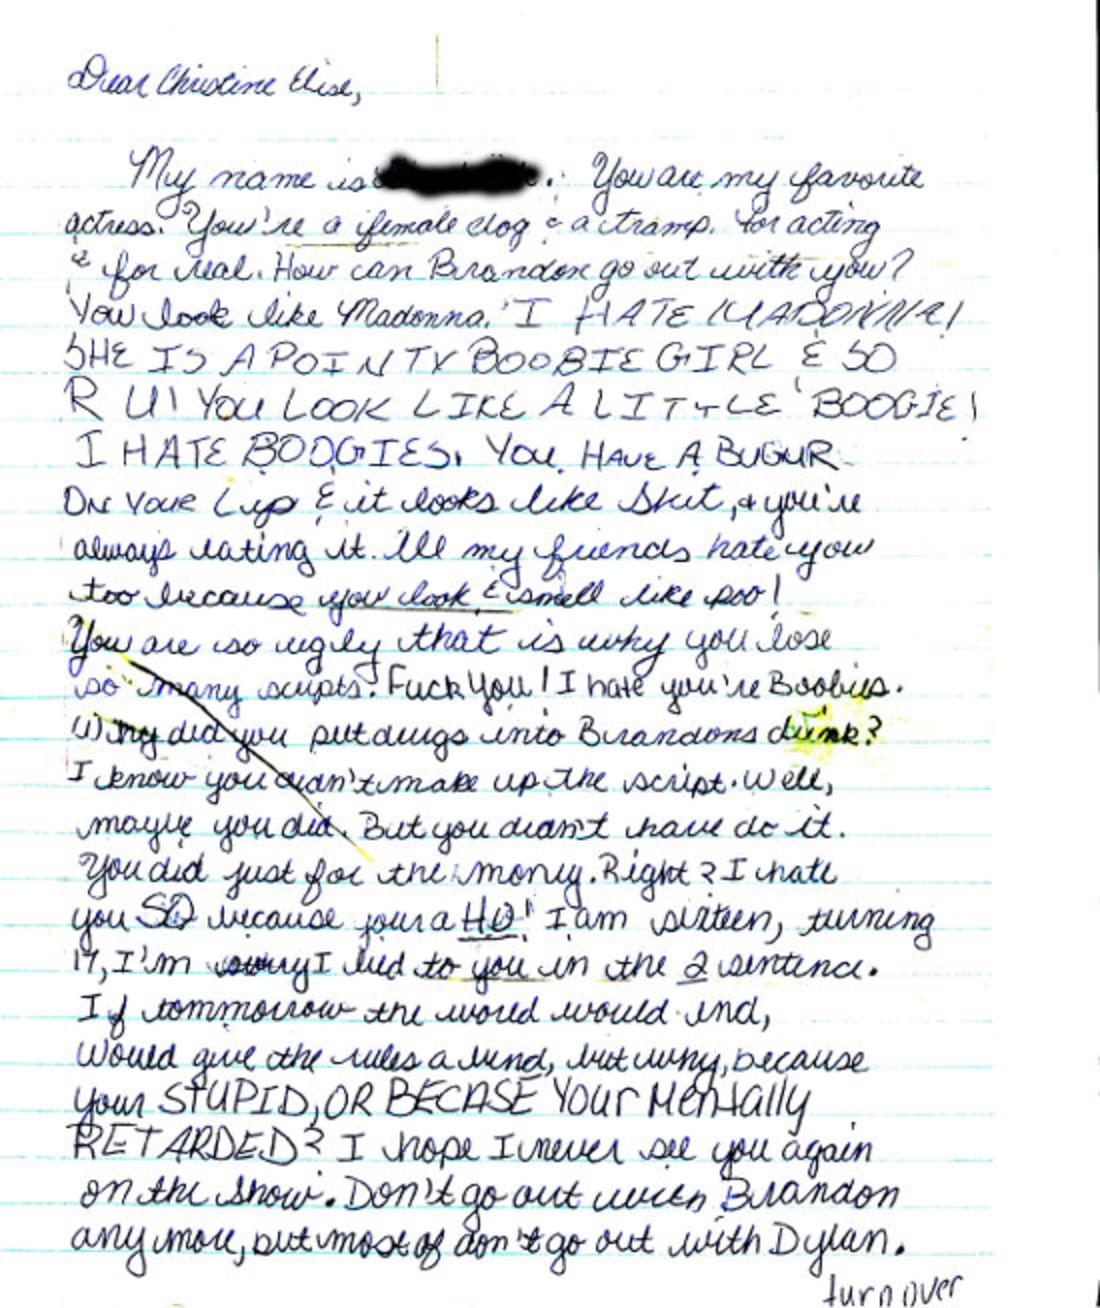 Dear Christine Elise,
My name is . You are my favorite
actress. You're a female dog & a tramp. for acting
& for real. How can Brandon go out with you?
You look like Madonna. I HATE MADONNA!
SHE IS A POINTY BOOBIE GIRL & SO
R U! YOU LOOK LIKE A LITTLE BOOGIE!
I HATE BOOGIES. YOU HAVE A BUGUR
ON YOUR Lip & it looks like Shit, & you're
always eating it. All my friends hate you
too because you look & smell like poo!
You are so ugly that is why you lose
so many scripts. Fuck You! I hate you're Boobies.
Why did you put drugs into Brandons drink?
I know you didn't make up the script. Well,
maybe you did. But you didn't have do it.
You did just for the money. Right? I hate
you SO because your a HO! I am sixteen, turning
17, I'm sorry I lied to you in the 2 sentence.
If tommorrow the world would end,
Would give the rules a bend, but why, because
your STUPID, OR BECASE YOUr MeNtally
RETARDED? I hope I never see you again
on the show. Don't go out with Brandon
any more, but most of don't go out with Dylan.
turn over